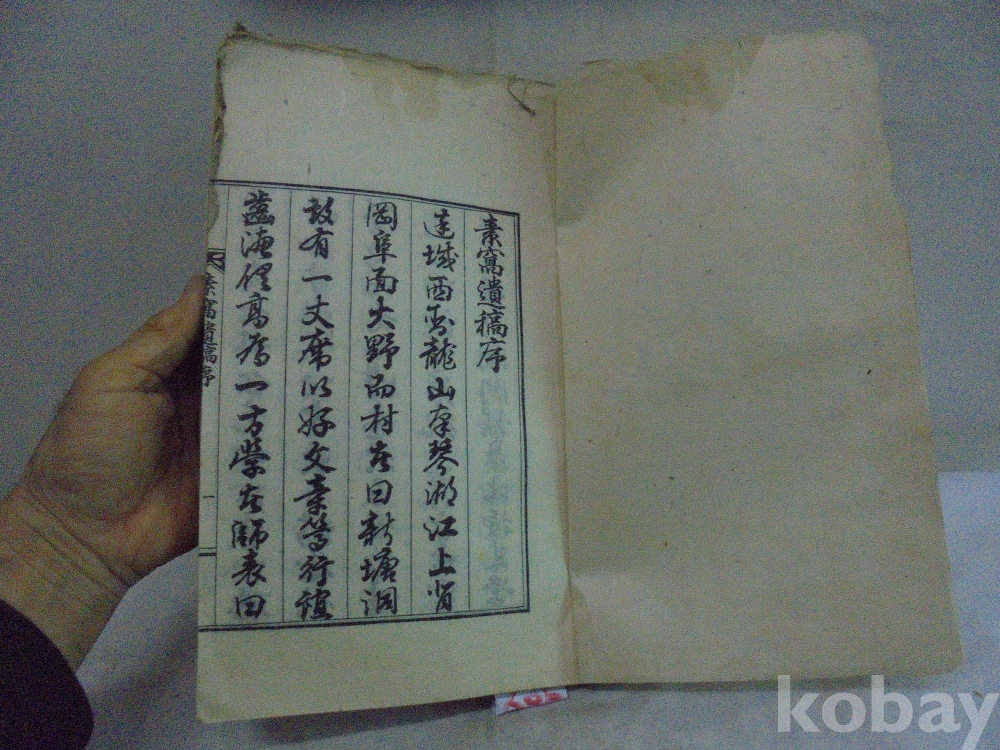 素窩遺稿序
達城西臥龍山南琴湖江上背
岡阜面大野而村者曰新塘洞
故有一丈席以好文章篤行誼
齒德俱高爲一方學者師表曰
素窩遺稿序
一
kobay